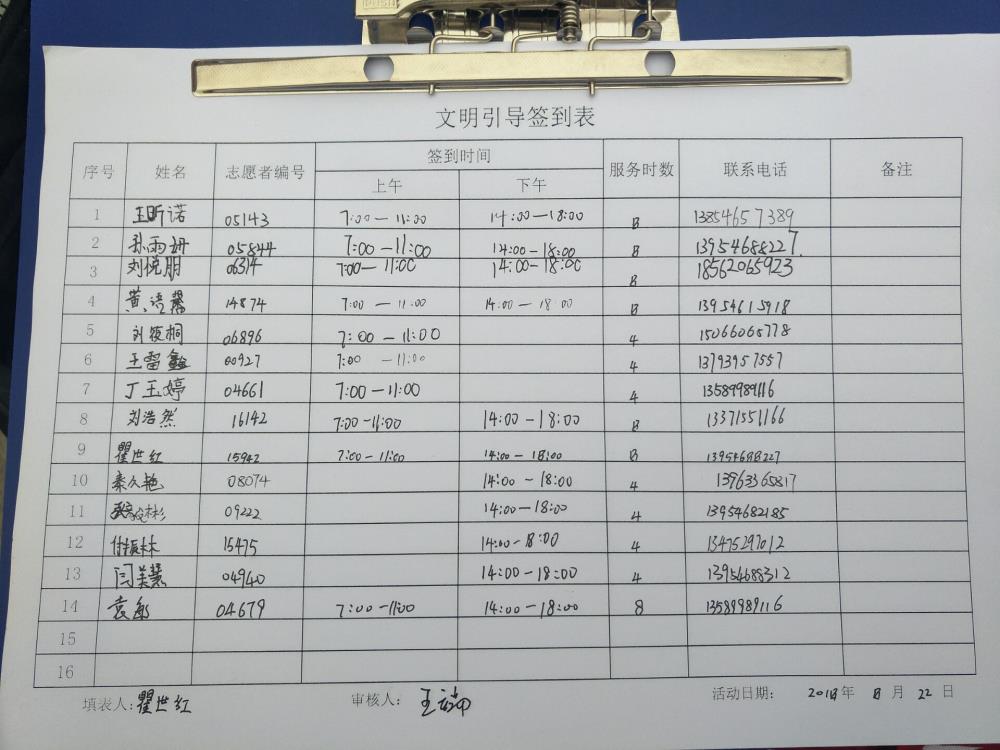 PUSH
文明引导签到表
序号 姓名 志愿者编号 签到时间 服务时数 联系电话 备注
上午 下午
1 王昕诺 05143 7:00—11:00 14:00—18:00 8 13854657389
2 孙雨妍 05844 7:00—11:00 14:00—18:00 8 13954688227
3 刘悦朋 06314 7:00—11:00 14:00—18:00 8 18562065923
4 黄语馨 14874 7:00—11:00 14:00—18:00 8 13954615918
5 刘筱桐 06896 7:00—11:00 4 15066065778
6 王 00927 7:00—11:00 4 13793957557
7 丁玉婷 04661 7:00—11:00 4 13589989116
8 刘浩然 16142 7:00—11:00 14:00—18:00 8 13371551166
9 瞿世红 15942 7:00—11:00 14:00—18:00 8 13954688227
10 秦久艳 08074 14:00—18:00 4 13963365817
11 09222 14:00—18:00 4 13954682185
12 付振林 15475 14:00—18:00 4 13475297012
13 闫美慧 04940 14:00—18:00 4 13954688312
14 袁 04679 7:00—11:00 14:00—18:00 8 13589989116
15
16
填表人:瞿世红 审核人: 王 活动日期: 2018年 8月 22日